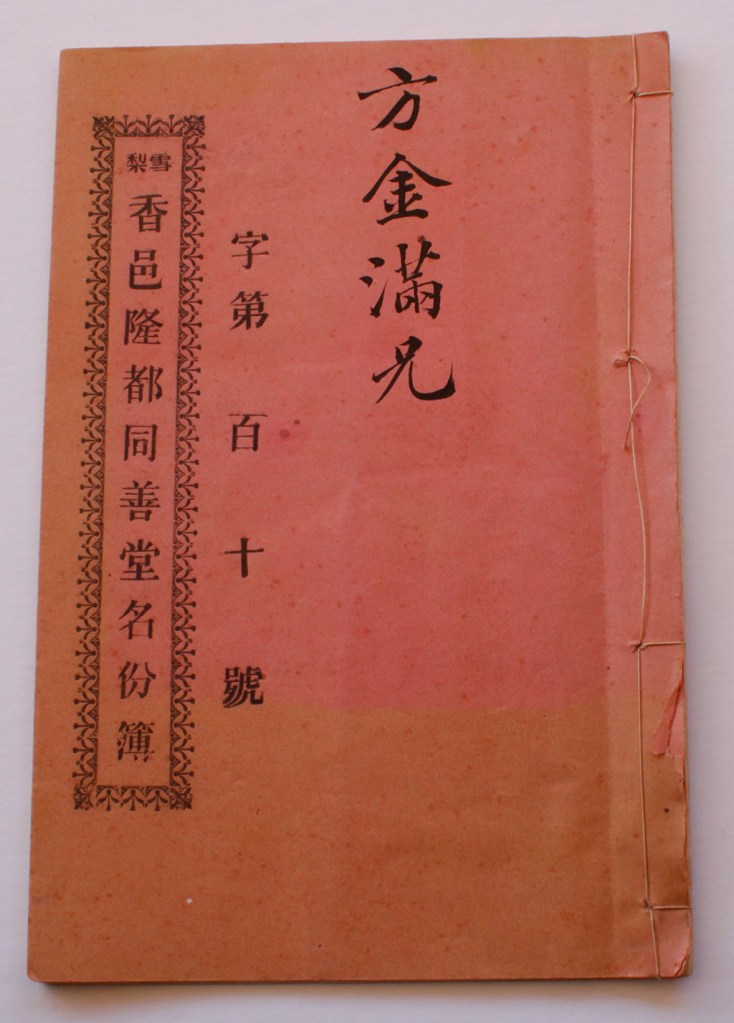 方金滿兄
字第 百 十 號
雪梨
香邑隆都同善堂名份簿